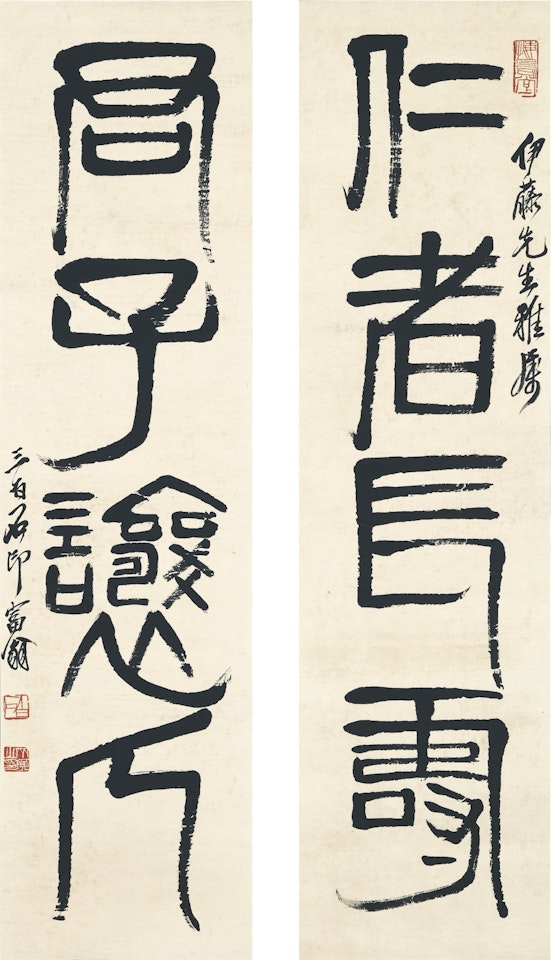 仁者長壽
伊藤先生雅屬
君子人
三百石印富翁